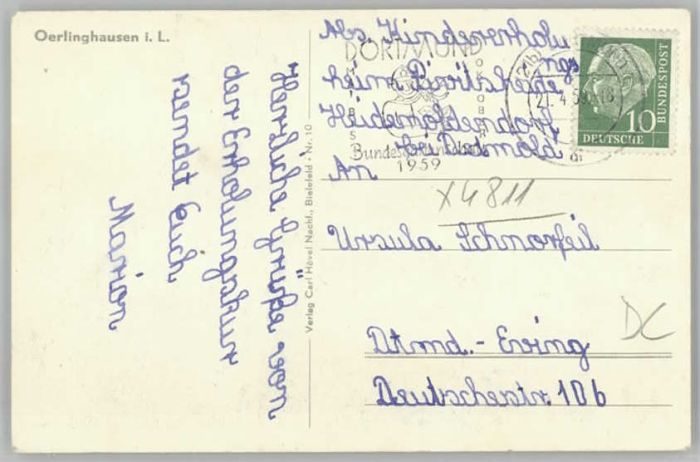 Oerlinghausen i. L.
Herzliche Grüße von
der Erholungskur
sendet Euch
Marion
Verlag Carl Hövel Nachf., Bielefeld · Nr. 10
Abs. Kindererholu
ngs
heim
Heidenoldendorf
bei Detmold
An
DORTMUND
Bundesgartenschau
1959
21.4.59.18
10
DEUTSCHE
BUNDESPOST
x4811
Ursula Schnorfeil
DC
Dtmd.-Eving
Deutschestr. 10b